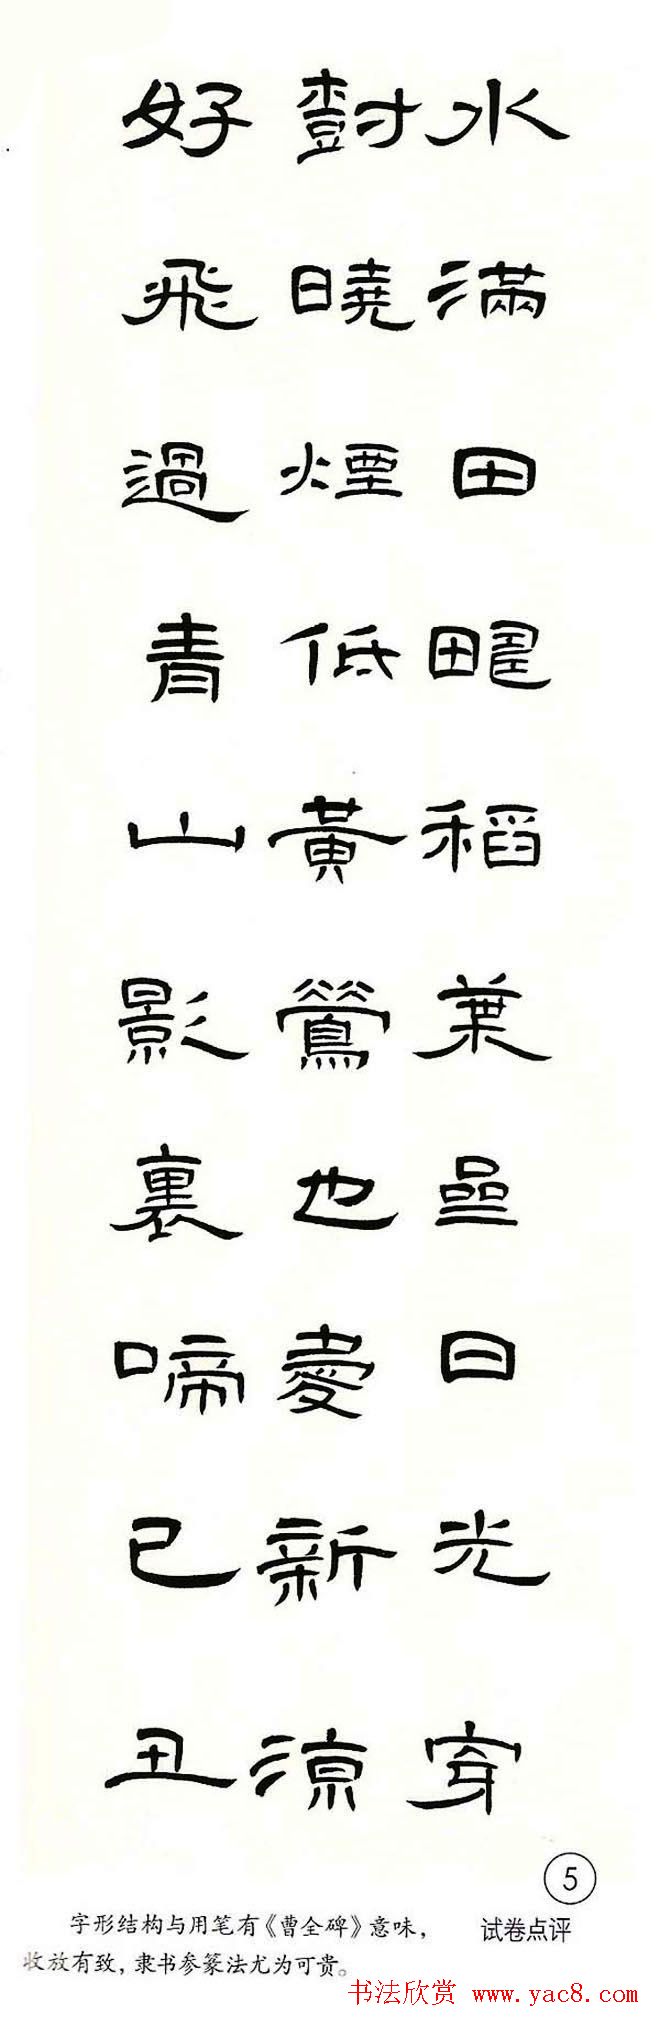 水滿田疇稻葉齊日光穿
樹曉煙低黃鶯也愛新涼
好飛過青山影裏啼己丑
5
试卷点评
字形结构与用笔有《曹全碑》意味，
收放有致，隶书参篆法尤为可贵。
书法欣赏 www.yac8.com